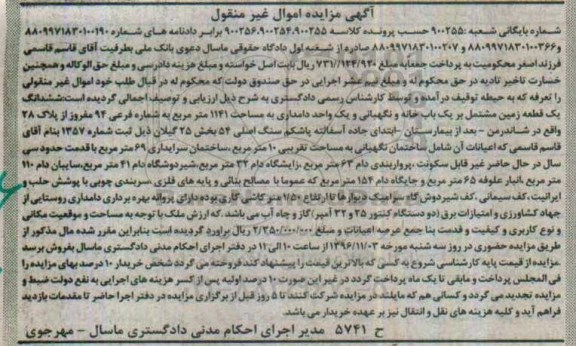 آگهی مزایده اموال غیر منقول
شماره بایگانی شعبه :۹۰۰۲۵۵ حسب پرونده کلاسه ۹۰۰۲۵۶،۹۰۰۲۵۴،۹۰۰۲۵۵ برابر دادنامه های شماره ۸۸۰۹۹۷۱۸۳۰۱۰۰۱۹۰
و۸۸۰۹۹۷۱۸۳۰۱۰۰۳۶۶ و ۸۸۰۹۹۷۱۸۳۰۱۰۰۲۰۷ صادره از شعبه اول دادگاه حقوقی ماسال دعوی بانک ملی بطرفیت آقای قاسم قاسمی
فرزند اصغر محکومیت به پرداخت جمعا به مبلغ ۷۳۱/۱۲۴/۹۳۰ ریال بابت اصل خواسته و مبلغ هزینه دادرسی و مبلغ حق الوکاله و همچنین
خسارت تاخیر تادیه در حق محکوم له و مبلغ نیم عشر اجرایی در حق صندوق دولت که محکوم له در قبال طلب خود اموال غیر منقولی
را تعرفه که به حیطه توقیف در آمده و توسط کارشناس رسمی دادگستری به شرح ذیل ارزیابی و توصیف اجمالی گردیده است:ششدانگ
یک قطعه زمین مشتمل بر یک باب خانه و نگهبانی و یک واحد دامداری به مساحت ۱۱۴۱ متر مربع به شماره فرعی ۹۴ مفروز از پلاک ۲۸
واقع در شاندرمن - بعد از بیمارستان -ابتدای جاده آسفالته پاشکم سنگ اصلی ۵۴ بخش ۲۵ گیلان ذیل ثبت شماره ۱۳۵۷ بنام آقای
قاسم قاسمی که اعیانات آن شامل ساختمان نگهبانی به مساحت تقریبی ۱۰ متر مربع،ساختمان سرایداری ۶۹ متر مربع با قدمت حدود سی
سال در حال حاضر غیر قابل سکونت ،پرواربندی دام ۶۳ متر مربع ،زایشگاه دام ۳۲ متر مربع،شیردوشگاه دام ۴۱ متر مربع،سایبان دام ۱۱۰
متر مربع ،انبار علوفه ۶۵ متر مربع و جایگاه دام ۱۵۴ متر مربع که عموما با مصالح بنائی و پایه های فلزی ،سربندی چوبی با پوشش حلب و
ایرانیت،کف سیمانی ،کف شیردوش گاه سرامیک دیوارها تا ارتفاع ۱/۵۰ متر کاشی کاری بوده دارای پروانه بهره برداری دامداری روستایی از
جهاد کشاورزی و امتیازات برق (دو دستگاه کنتور ۲۵ و ۳۲ آمپر)گاز و چاه آب می باشد .که ارزش ملک با توجه به مساحت و موقعیت مکانی
و نوع کاربری و کیفیت و قدمت بنا جمع عرصه اعیانات و مبلغ ۲/۳۵۰/۰۰۰/۰۰۰ ریال براورد گردیده است بنابراین مقرر شده مال مذکور از
طریق مزایده حضوری در روز سه شنبه مورخه ۱۳۹۶/۱۱/۰۳ از ساعت ۱۰ الی ۱۲ در دفتر اجرای احکام مدنی دادگستری ماسال بفروش برسد
.مزایده از قیمت پایه کارشناسی شروع به کسی که بالاترین قیمت را پیشنهاد کند فروخته می گردد شخص خریدار ۱۰ درصد بهای مزایده را
فی المجلس پرداخت و مابقی تا یک ماه پرداخت گردد در غیر این صورت ۱۰ درصد اولیه پس از کسر هزینه های اجرایی به نفع دولت ضبط و
مزایده تجدید می گردد و کسانی هم که مایلند در مزایده شرکت کنند تا ۵ روز قبل از برگزاری مزایده در دفتر اجرا حاضر تا مقدمات بازدید
فراهم آید و کلیه هزینه های نقل و انتقال نیز بر عهده خریدار می باشد.
ح ۵۷۴۱ مدیر اجرای احکام مدنی دادگستری ماسال - مهرجوی